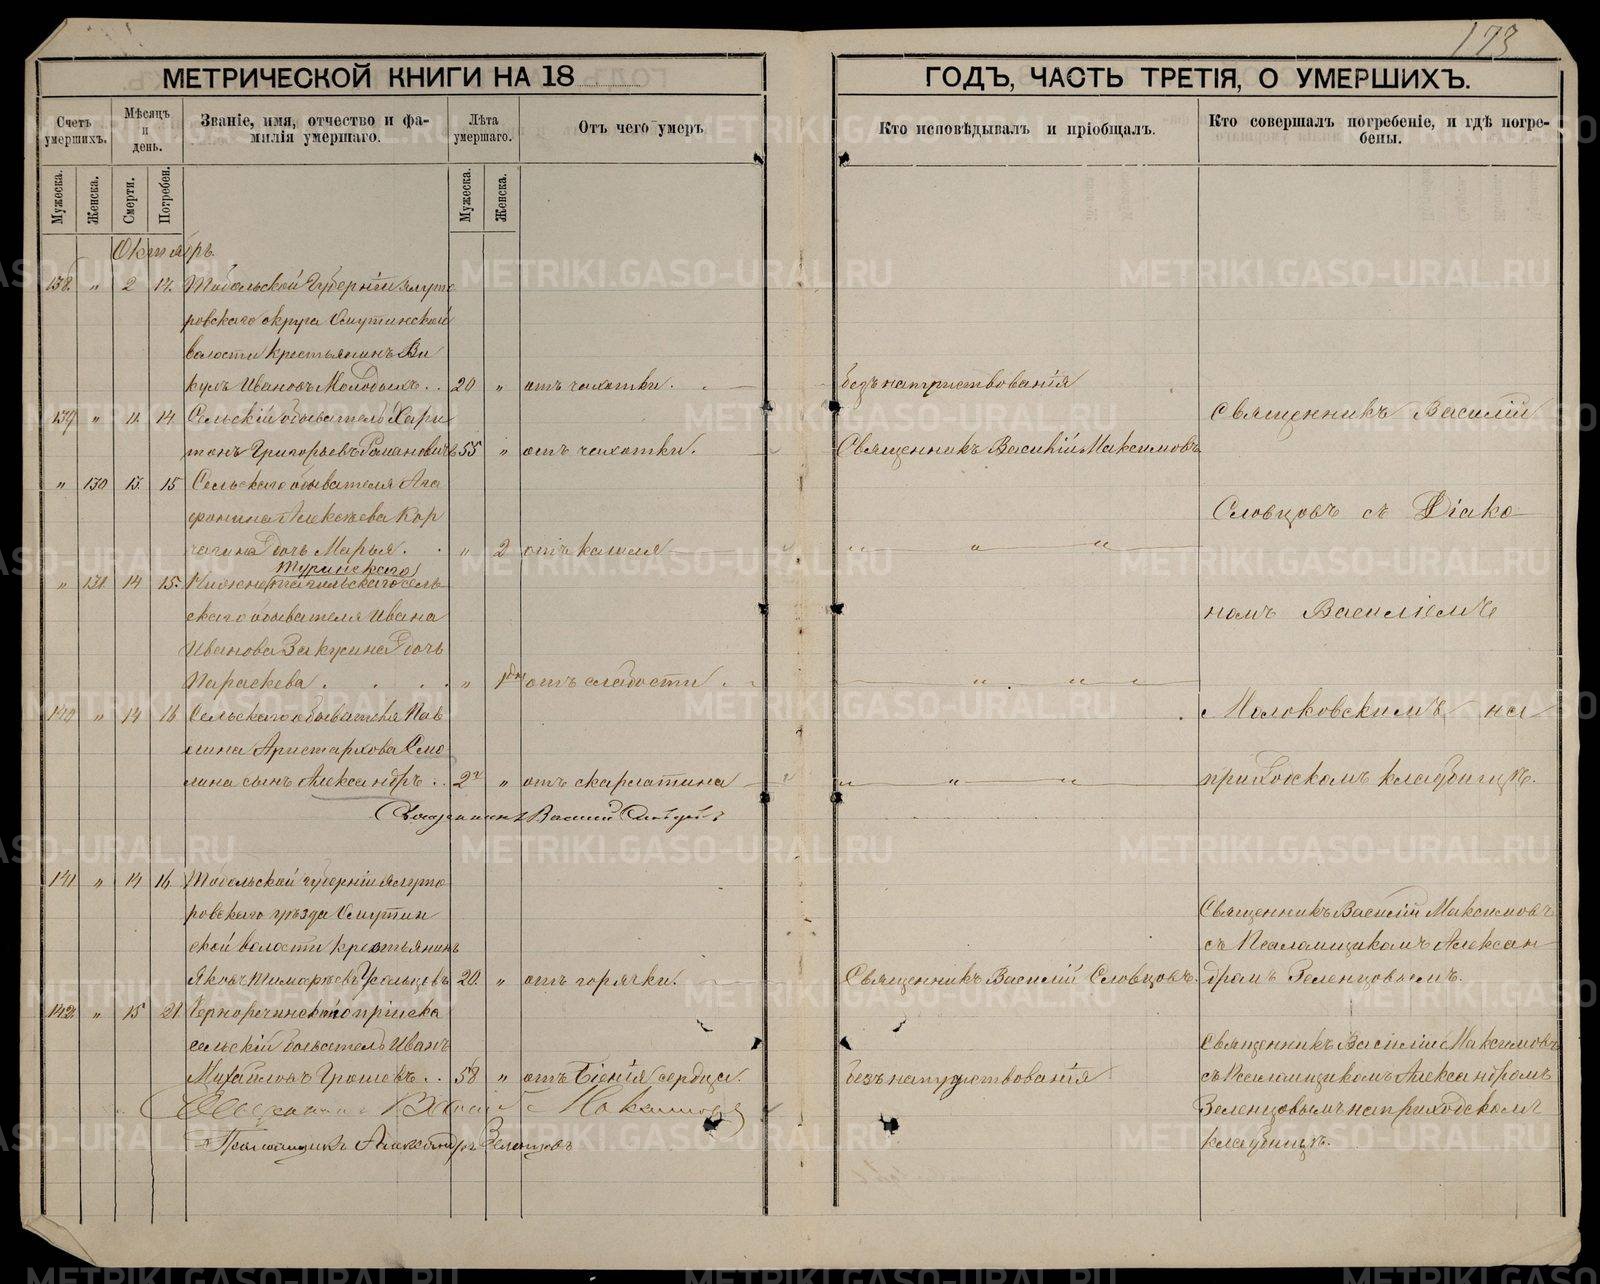 173
МЕТРИЧЕСКОЙ КНИГИ НА 18
ГОДЪ, ЧАСТЬ ТРЕТІЯ, О УМЕРШИХЪ.
Счетъ умершихъ.
Мѣсяцъ и день.
Званіе, имя, отчество и фа-
милія умершаго.
Лѣта умершаго.
Отъ чего умеръ
Кто исповѣдывалъ и пріобщалъ.
Кто совершалъ погребеніе, и гдѣ погре-
бены.
Мужеска.
Женска.
Смерти.
Погребен.
Мужеска.
Женска.
Октябрь
138. " 2 14. Тобольской Губерніи Ялуто
ровскаго округа Омутинской
волости крестьянинъ Ви
кулъ Ивановъ Молодыхъ . . 20 " отъ чахотки. безъ напутствованія
139 " 11. 14 Сельскій обыватель Хари
тонъ Григорьевъ Романовичъ 55 " отъ чахотки. Священникъ Василій Максимовъ
Священникъ Василій
" 130 13. 15 Сельскаго обывателя Ага
фонина Алексѣева Кор
чагина дочь Марья . . " 2 отъ кашля " " "
Словцовъ съ Діако
Туринскаго
" 131 14 15. Нижнетагильскаго сель
скаго обывателя Ивана
Иванова Закусина дочь
Параскева . . . . " 1дн отъ слабости . " " "
номъ Василіемъ
140 " 14 16 Сельскаго обывателя Пав
лина Аристархова Смо
лина сынъ Александръ . . 2 " отъ скарлатина " " "
Молоковскимъ на
приходскомъ кладбищѣ.
Священникъ Василій Словцовъ
141 " 14 16 Тобольской губерніи Ялуто
ровскаго уѣзда Омутин
ской волости крестьянинъ
Яковъ 20. " отъ горячки. Священникъ Василій Словцовъ.
Священникъ Василій Максимовъ
съ Псаломщикомъ Алексан
дромъ Зеленцовымъ.
142 " 15 21 Чернореченскаго пріиска
сельскій обыватель Иванъ
Михайловъ Грошевъ . . 58 " отъ Біенія сердца. безъ напутствованія
Священникъ Василій Максимовъ
съ Псаломщикомъ Александромъ
Зеленцовымъ на приходскомъ
кладбищѣ.
Священникъ Василій Максимовъ
Псаломщикъ Александръ Зеленцовъ
METRIKI.GASO-URAL.RU